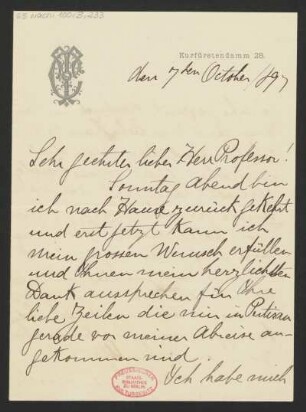 Kurfürstendamm 28.
den 7ten October /97
Sehr geehrter lieber Herr Professor!
Sonntag Abend bin
ich nach Hause zurück gekehrt
und erst jetzt kann ich
mein grossen Wunsch erfüllen
und Ihnen mein herzlichsten
Dank aussprechen für Ihre
liebe Zeilen die mir in
gerade vor meiner Abreise an-
gekommen sind.
Ich habe mich